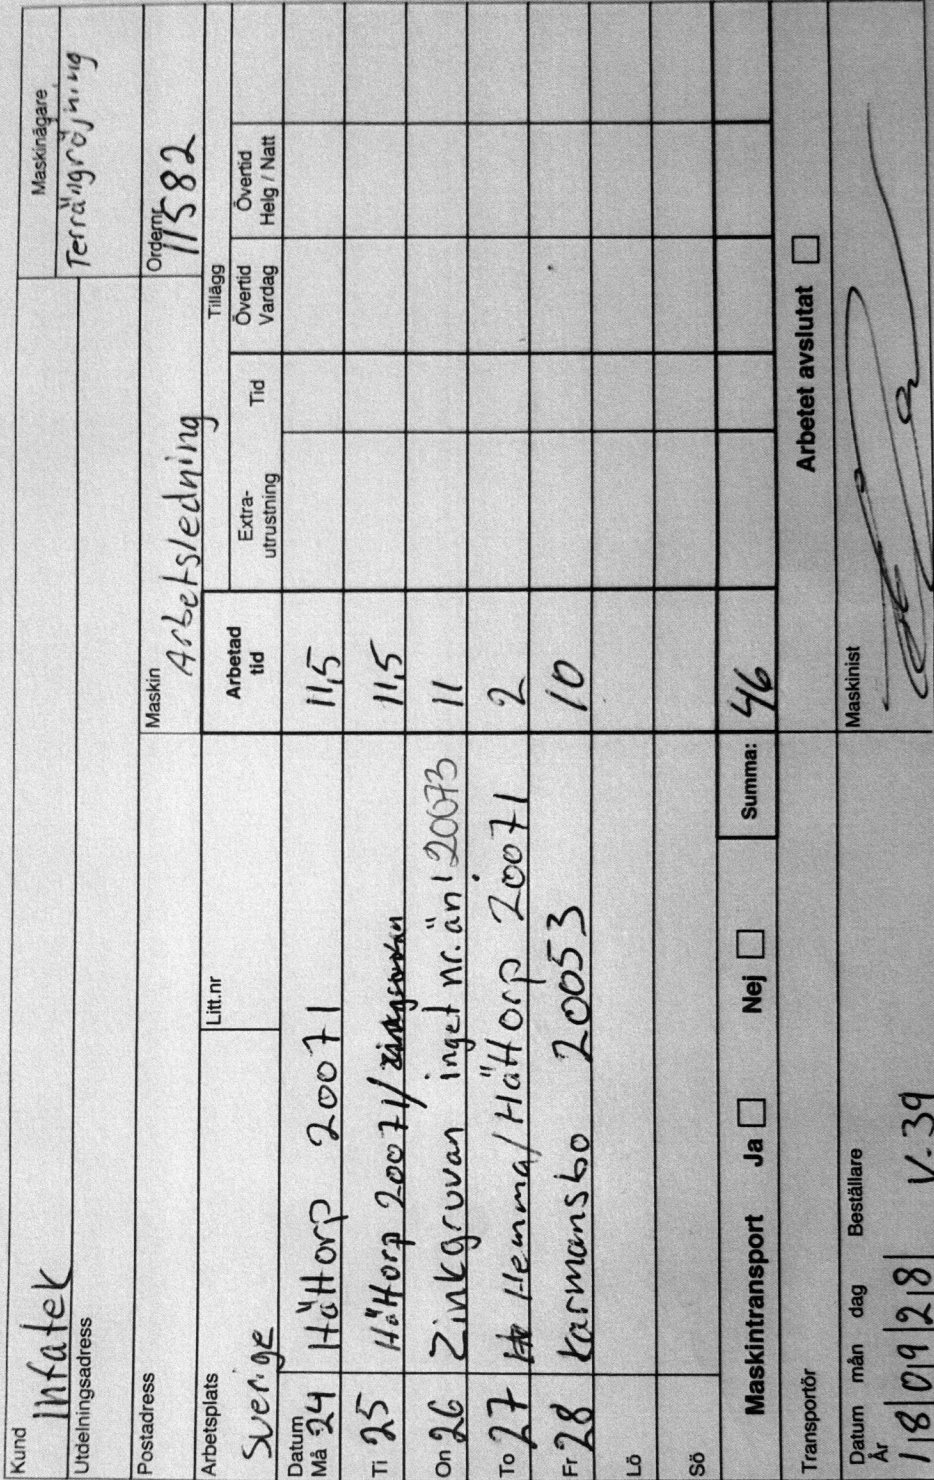 Kund
Infatek
Maskinägare
Terrängröjning
Utdelningsadress
Postadress
Maskin
Arbetsledning
Ordernr
11582
Arbetsplats
Sverige
Litt.nr
Arbetad tid
Tillägg
Extra-utrustning
Tid
Övertid Vardag
Övertid Helg / Natt
Datum
Må 24 Hättorp 20071 11,5
Ti 25 Hättorp 20071/ 11,5
On 26 Zinkgruvan inget nr. än! 20073 11
To 27 Hemma/Hättorp 20071 2
Fr 28 Karmansbo 20053 10
Lö
Sö
Maskintransport Ja Nej Summa: 46
Transportör
Arbetet avslutat
Datum mån dag
År
18 09 28
Beställare
V-39
Maskinist